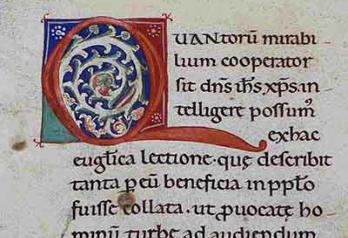 QUANtorū mirabi
lium cooperator
sit dn̄s ih̄s xp̄s·in
telligere possum᷒
exhac
eugl̄ica lectione·quę describit
tanta p eū beneficia in pplō
fuisse collata·ut ꝓuocatę ho
minū turbę ad audiendum